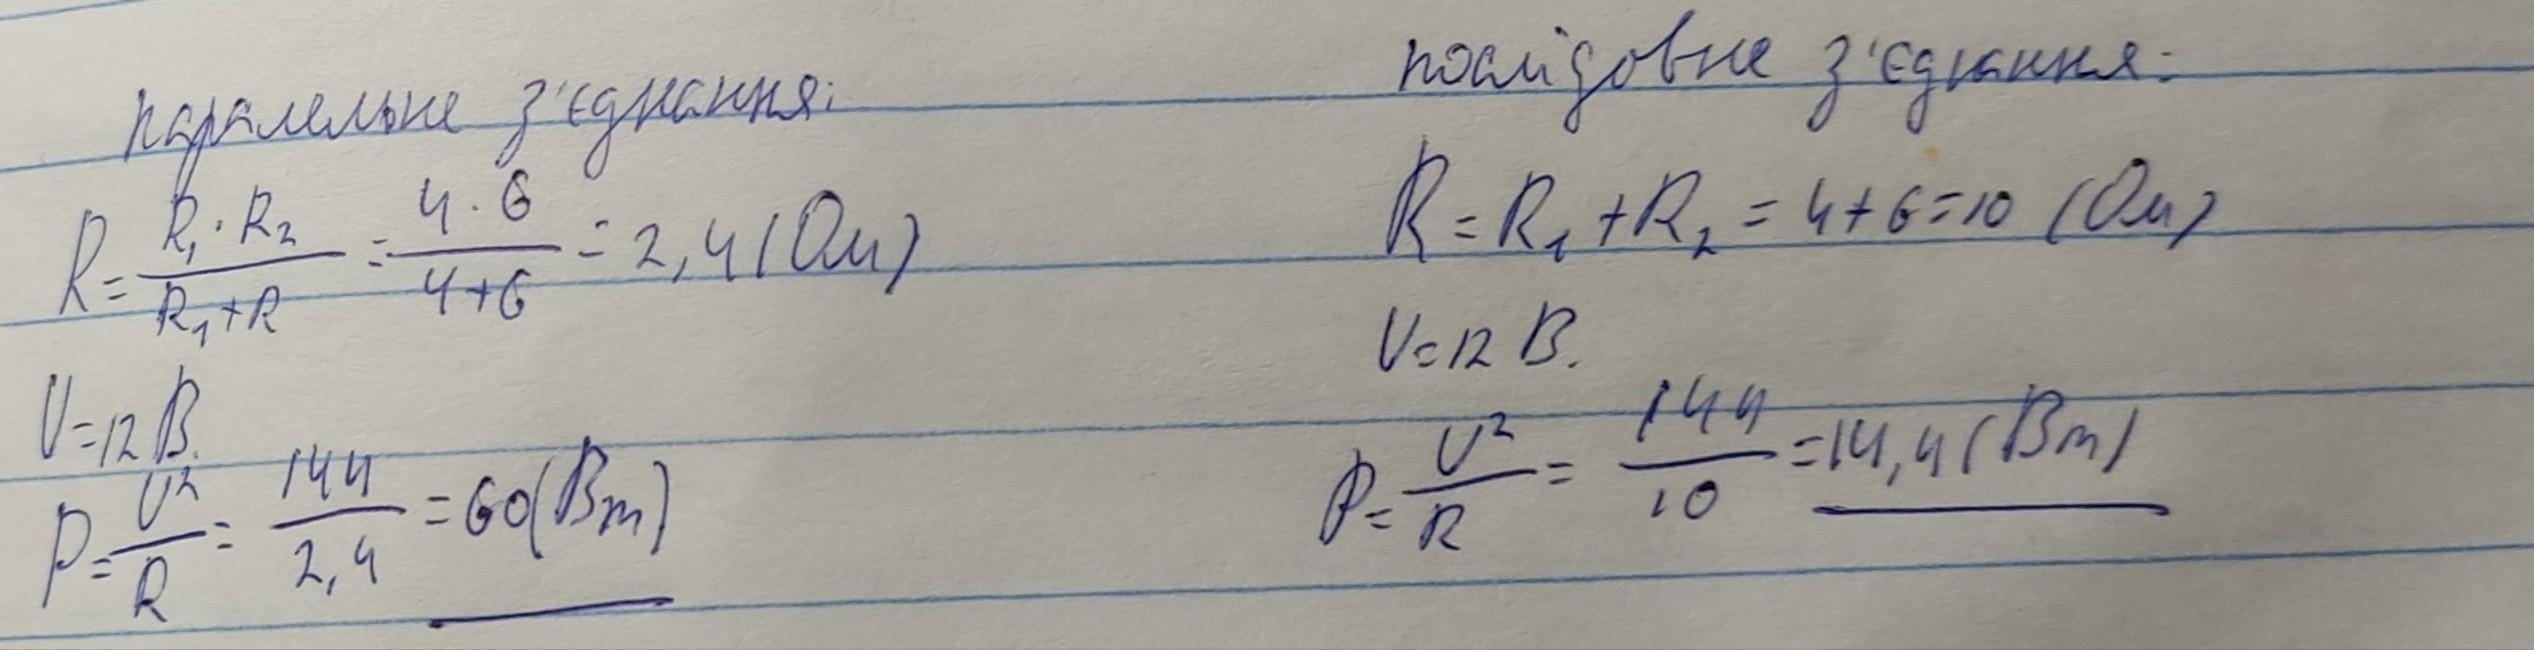 паралельне з'єднання:
R = R₁·R₂ / R₁+R = 4·6 / 4+6 = 2,4 (Ом)
U=12 В.
P = U² / R = 144 / 2,4 = 60 (Вт)
послідовне з'єднання:
R = R₁ + R₂ = 4+6=10 (Ом)
U=12 В.
P = U² / R = 144 / 10 = 14,4 (Вт)